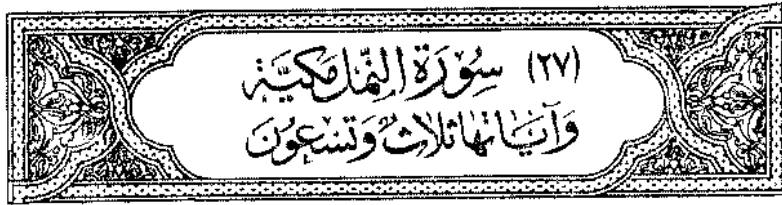 (٢٧) سُورَة النَّمل مَكيَّة
وَآيَاتُهَا ثلاثٌ وَتسْعُونَ